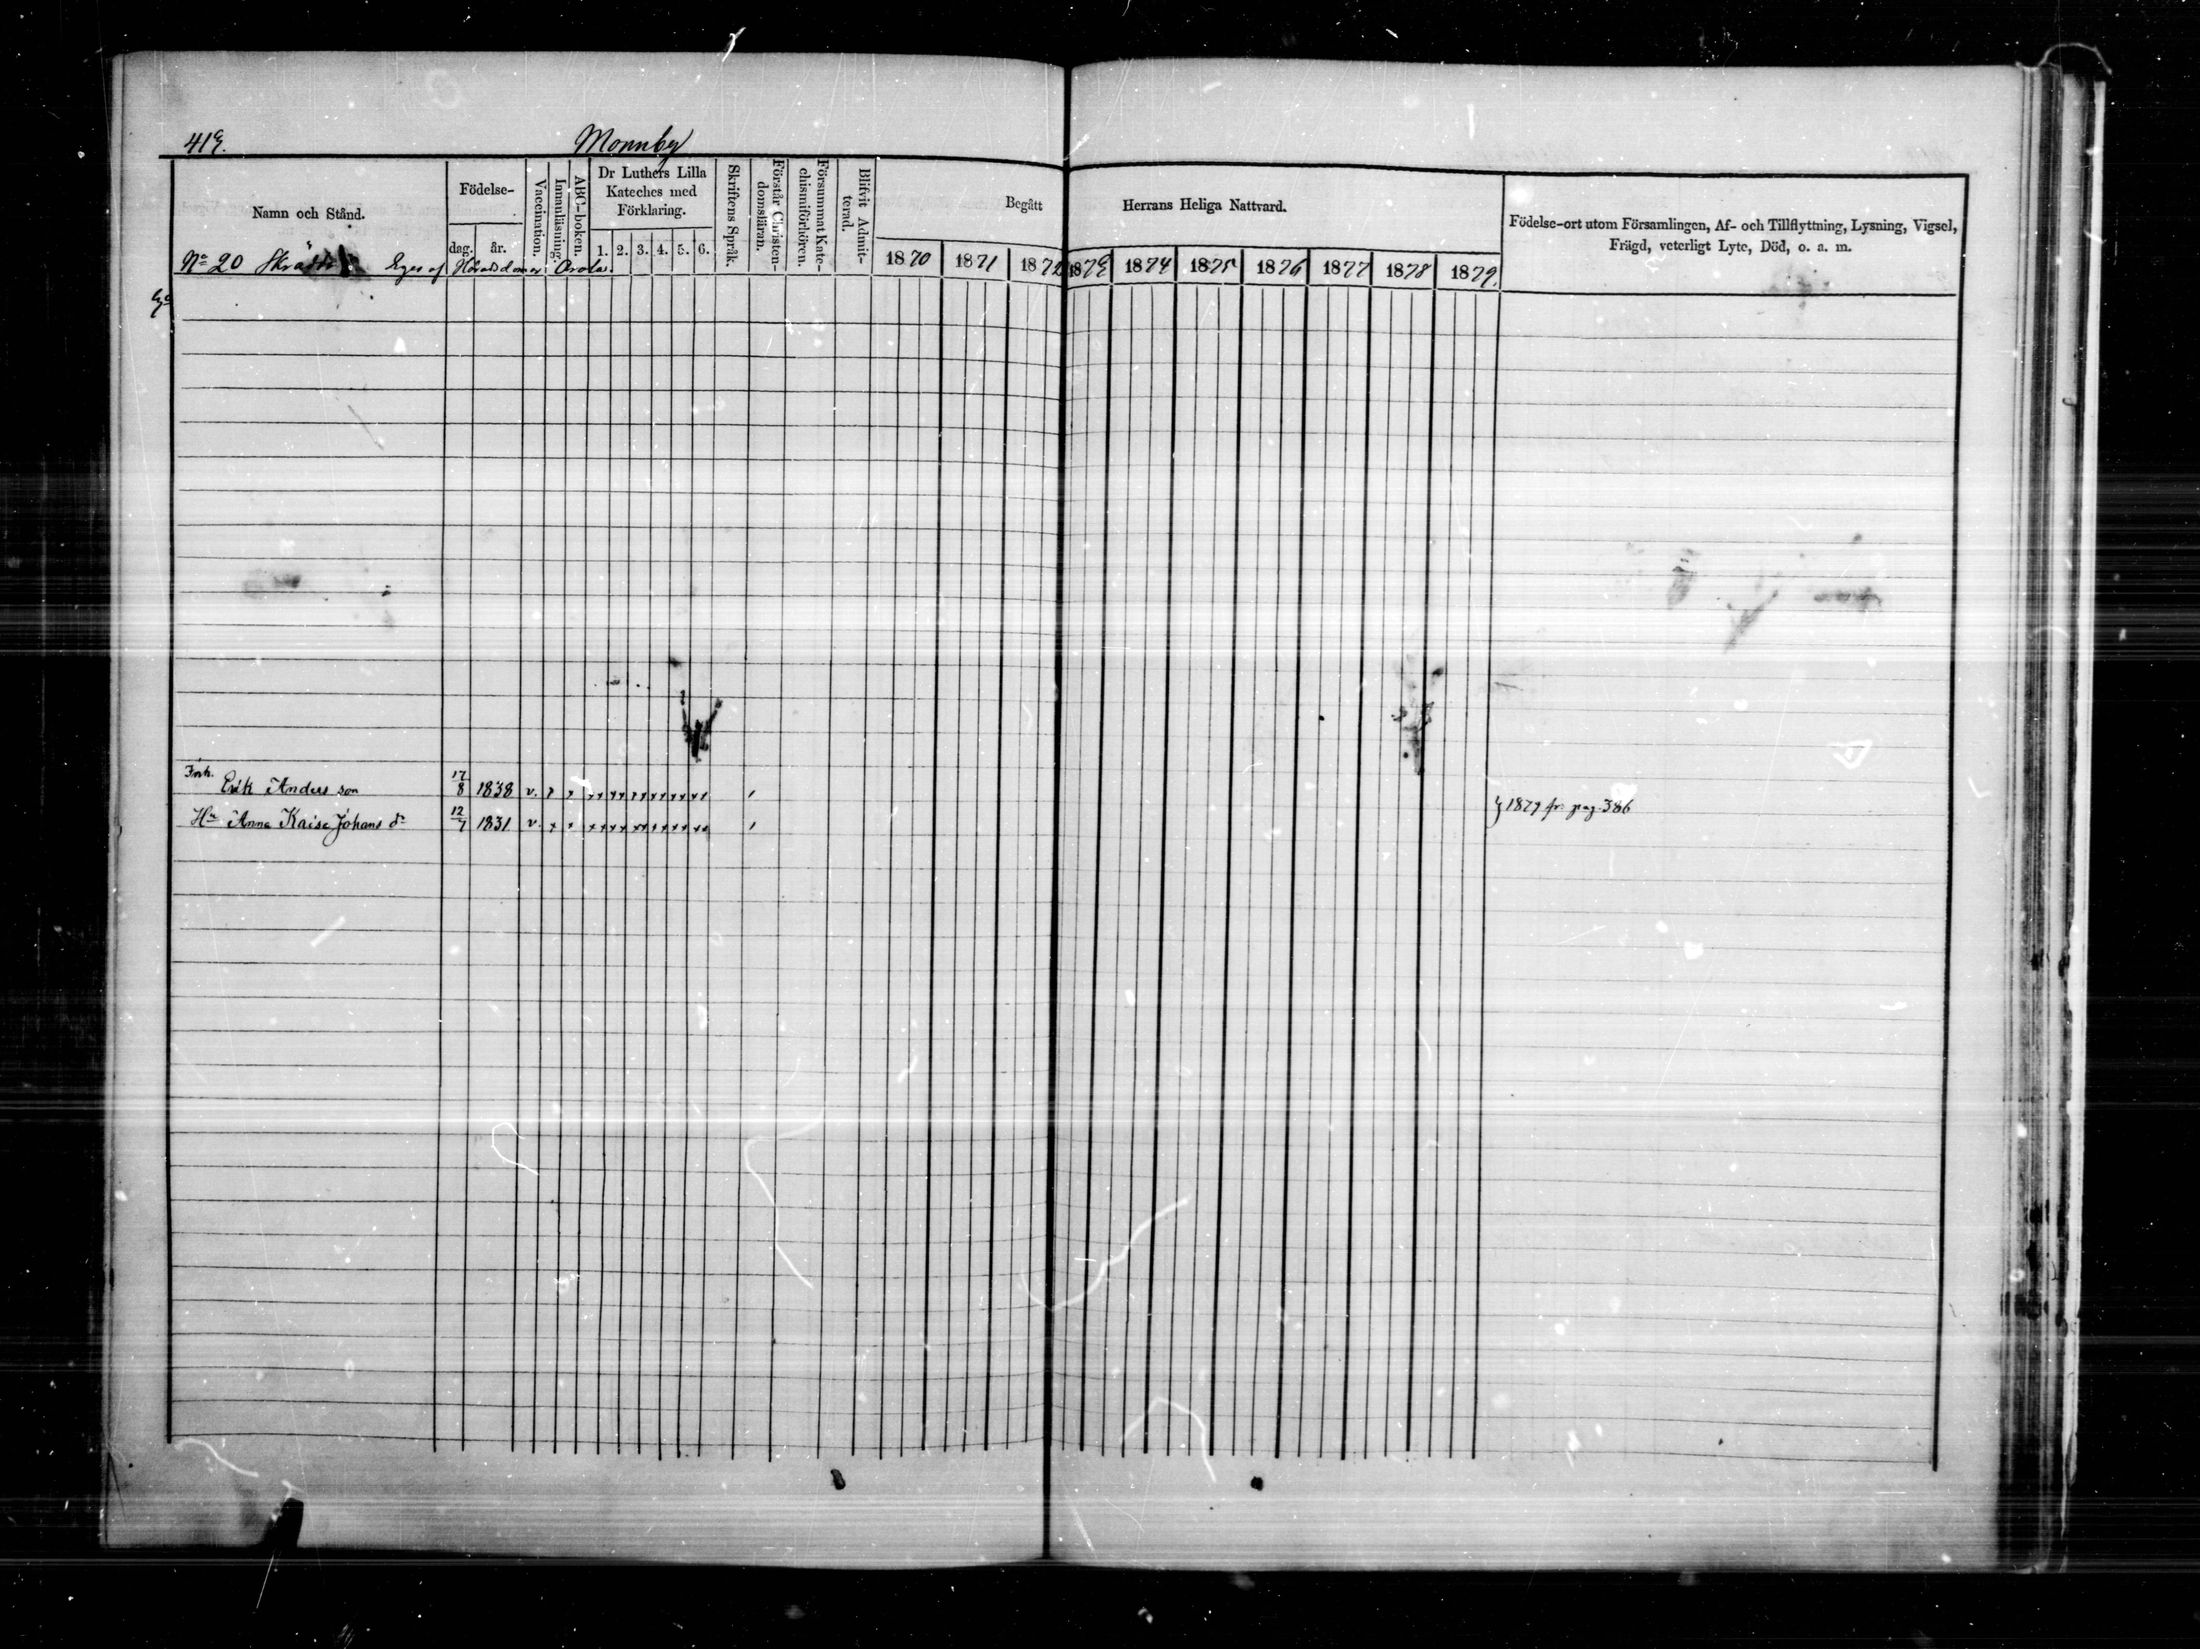 Monnby
Namn och Stånd.
Födelse-
dag. år.
Vaccination.
Innanläsning.
ABC-boken.
Dr Luthers Lilla
Kateches med
Förklaring.
1. 2. 3. 4. 5. 6.
Skriftens Språk.
Förstår Christen-
domsläran.
Försummat Kate-
chismiförhören.
Blifvit Admit-
terad.
Begått Herrans Heliga Nattvard.
1870 1871 1872 1873 1874 1875 1876 1877 1878 1879.
Födelse-ort utom Församlingen, Af- och Tillflyttning, Lysning, Vigsel,
Frägd, veterligt Lyte, Död, o. a. m.
No 20 Eges af
Erik Anders son 17/8 1838 v.
Hu Anna Kaisa Johans dr 12/7 1831 v.
} 1879 fr. pag. 386